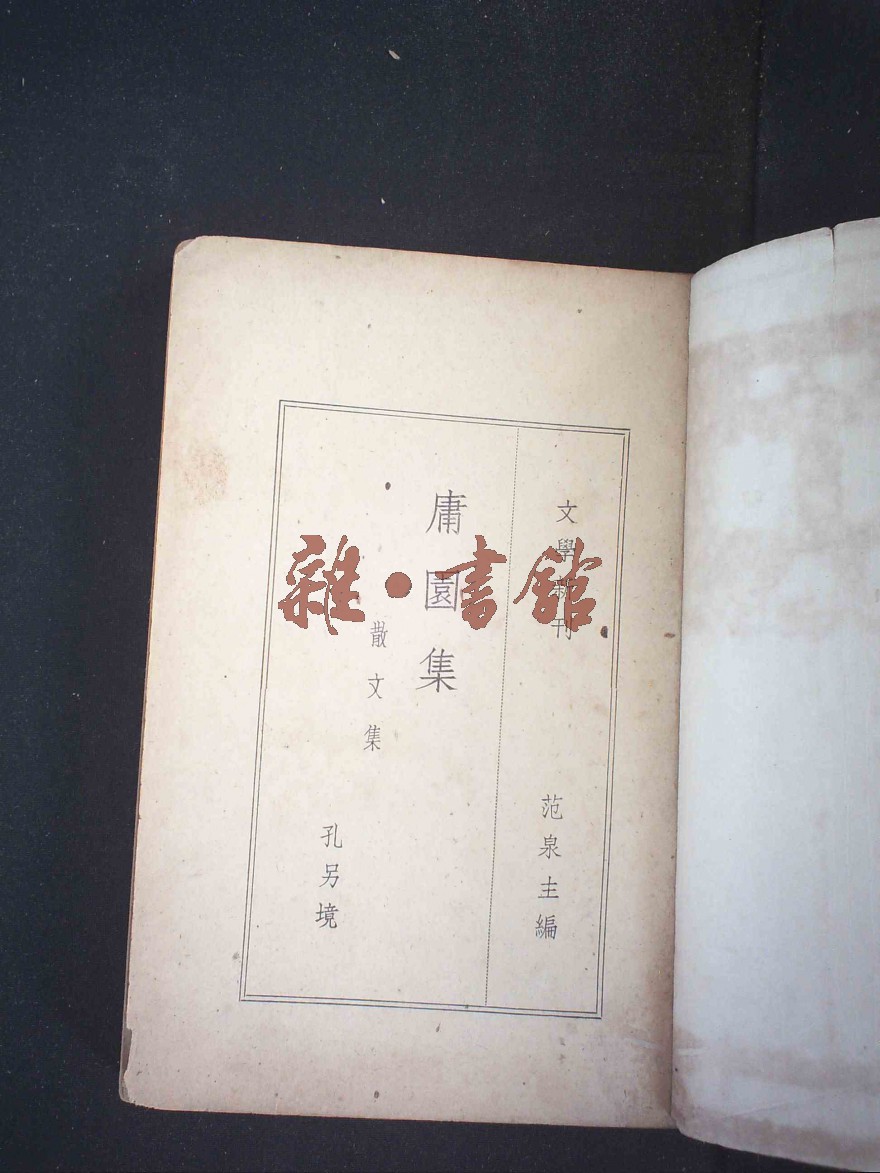 文學新刊
范泉主編
庸園集
散文集
孔另境
雜·書館